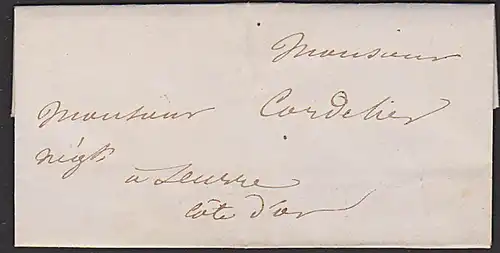 Monsieur
Monsieur Cordelier
négt
à Seurre
Côte d'or